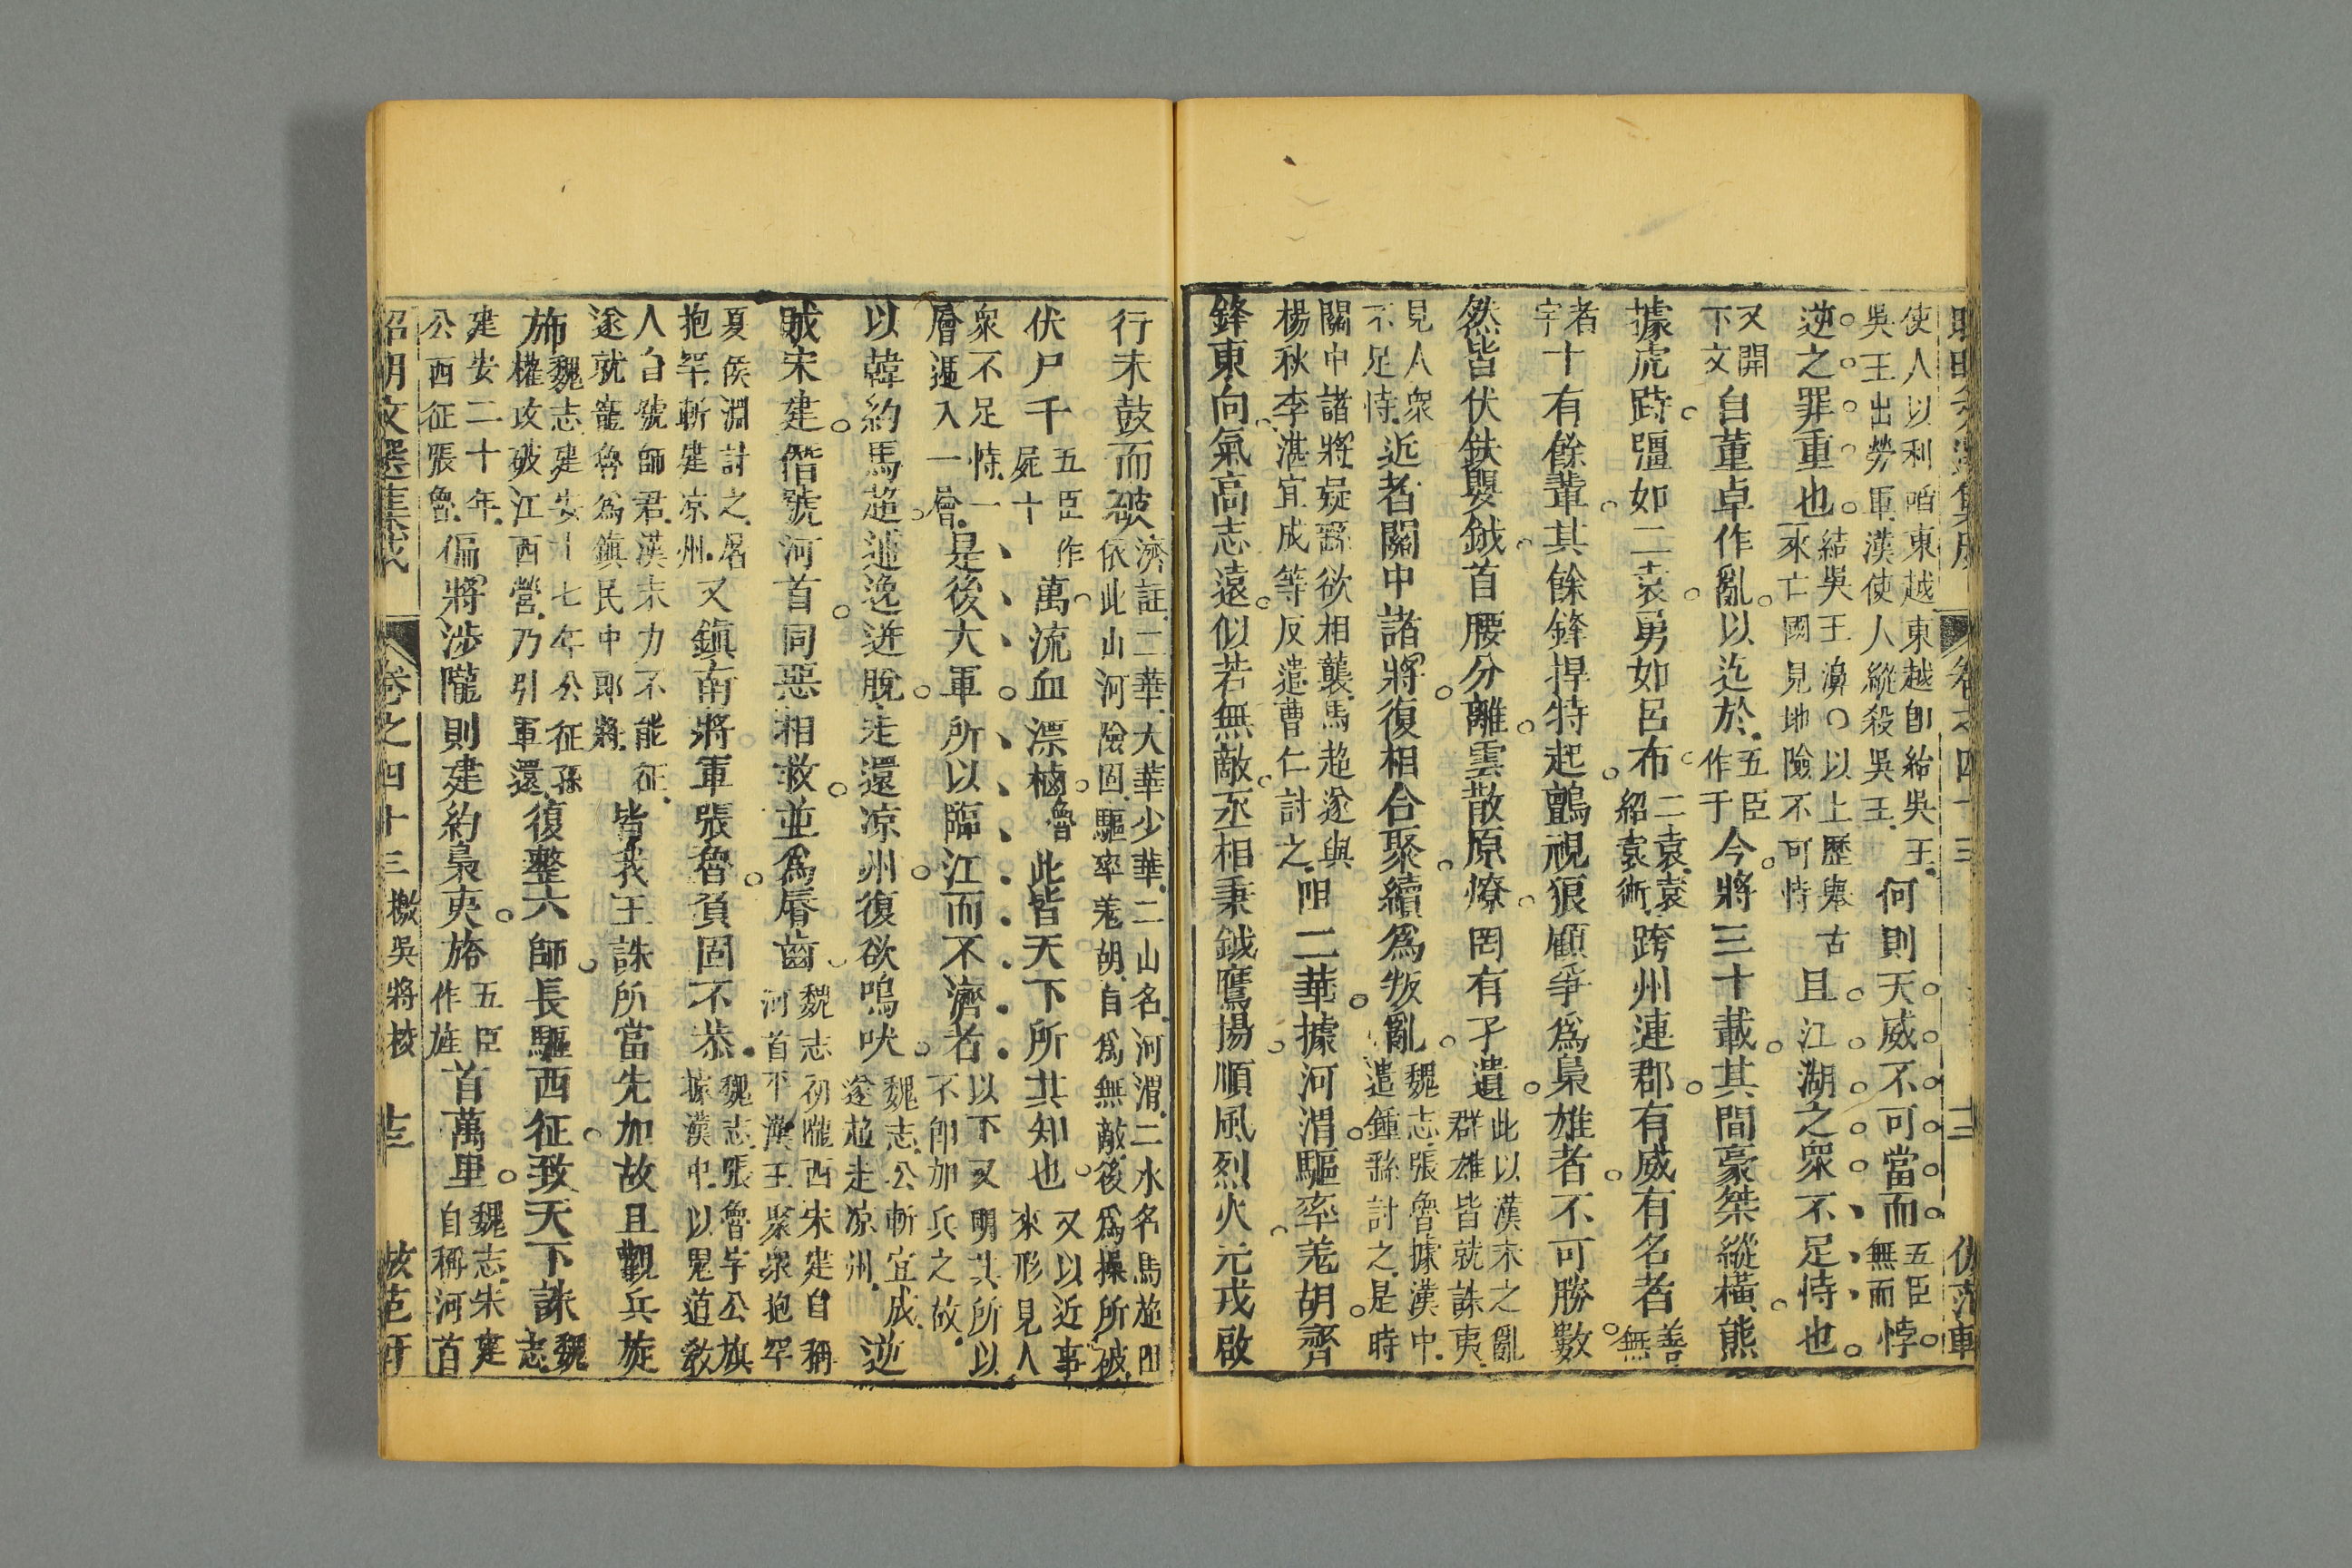 使人以利啗東越東越卽紿吳王吳王出勞軍漢使人縱殺吳王何則天威不可當而五臣無而悖
逆之罪重也結吳王濞○以上歷舉古來亡國見地險不可恃且江湖之衆不足恃也
又開下文自董卓作亂以迄於五臣作于今將三十載其間豪桀縱橫熊
據虎跱彊如二袁勇如呂布二袁袁紹袁術跨州連郡有威有名者善無
者字十有餘輩其餘鋒捍特起鸇視狼顧爭爲梟雄者不可勝數
然皆伏鈇嬰鉞首腰分離雲散原燎罔有孑遺此以漢末之亂群雄皆就誅夷
見人衆不足恃近者關中諸將復相合聚續爲叛亂魏志張魯據漢中遣鍾繇討之是時
關中諸將疑繇欲相襲馬超遂與楊秋李湛宜成等反遣曹仁討之阻二華據河渭驅率羌胡齊
鋒東向氣高志遠似若無敵丞相秉鉞鷹揚順風烈火元戎啟
行未鼓而破濟註二華大華少華二山名河渭二水名馬旋阻依此山河險固驅率羌胡自爲無敵後爲操所破
伏尸千五臣作屍十萬流血漂樐魯此皆天下所共知也又以近事來形見人
衆不足恃一層遞入一層是後大軍所以臨江而不濟者以下又明其所以不卽加兵之故
以韓約馬超逋逸迸脫走還凉州復欲鳴吠魏志公斬宜成遂超走凉州逆
賊宋建僭號河首同惡相救並爲脣齒魏志初隴西朱建自稱河首平漢王聚衆抱罕
夏侯淵討之屠抱罕斬建凉州又鎮南將軍張魯負固不恭魏志張魯字公旗據漢中以鬼道敎
人自號師君漢末力不能征遂就寵魯爲鎮民中郎將皆我王誅所當先加故且觀兵旋
斾魏志建安十七年公征孫權攻破江西營乃引軍還復整六師長驅西征致天下誅魏志
建安二十年公西征張魯偏將涉隴則建約梟夷旍五臣作旌首萬里魏志朱建自稱河首
昭明文選集成 卷之四十三 檄吳將校